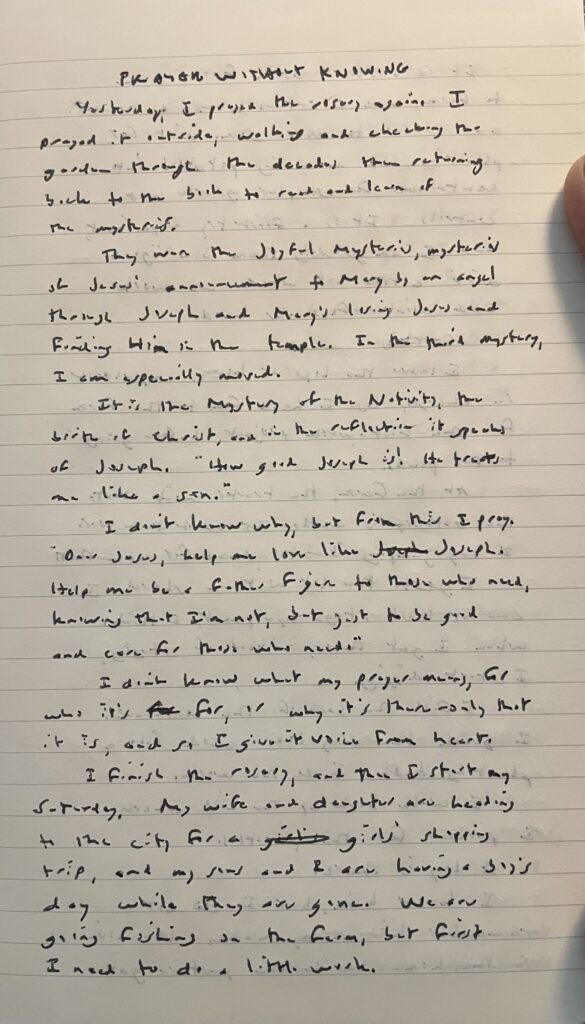 PRAYER WITHOUT KNOWING
Yesterday, I prayed the rosary again. I
prayed it outside, walking and checking the
garden through the decades then returning
back to the book to read and learn of
the mysteries.
They were the Joyful Mysteries, mysteries
of Jesus' announcement to Mary by an angel
through Joseph and Mary's losing Jesus and
Finding Him in the temple. In the third mystery,
I am especially moved.
It is the Mystery of the Nativity, the
birth of Christ, and in the reflection it speaks
of Joseph. "How good Joseph is! He treats
me like a son."
I don't know why, but from this I pray.
"Dear Jesus, help me love like Joseph.
Help me be a father figure to those who need,
knowing that I'm not, but just to be good
and care for those who need."
I don't know what my prayer means, or
who it's for, or why it's there only that
it is, and so I give it voice from heart.
I finish the rosary, and then I start my
Saturday. My wife and daughter are heading
to the city for a girls' shopping
trip, and my sons and I are having a boy's
day while they are gone. We are
going fishing on the farm, but first
I need to do a little work.